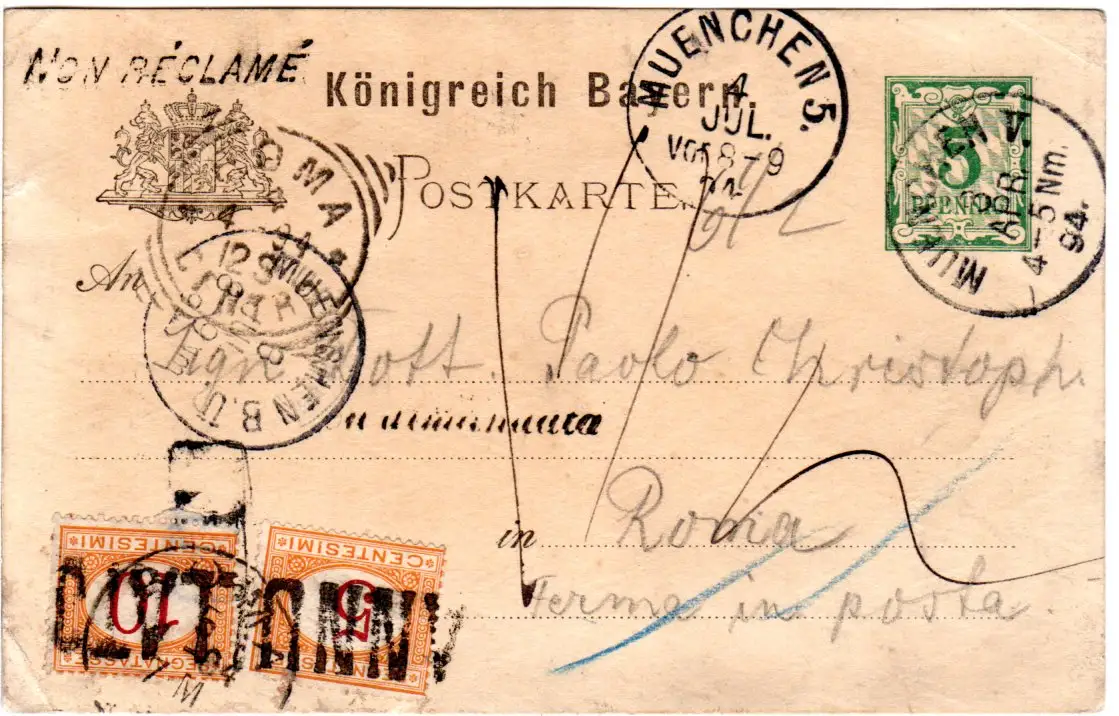 NON RÉCLAMÉ
Königreich Bayern.
POSTKARTE.
MUENCHEN 5.
4
JUL.
Vor 8-9
94
5
PFENNIG
MUENCHEN V
APR.
4-5 Nm.
94.
ROMA
4-94
12 S
MUENCHEN B.
An
Sign. Dott. Paolo Christoph.
in Roma
Ferma in posta.
CENTESIMI
10
SEGNATASSE
CENTESIMI
5
ANNULLATO